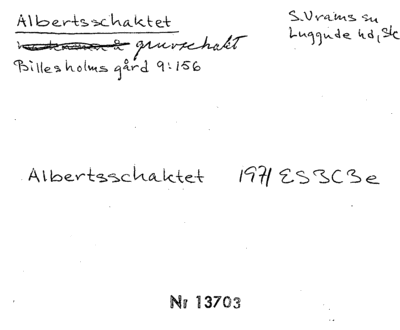 Albertsschaktet
S. Vrams sn
gruvschakt
Luggude hd, Sk
Billesholms gård 9:156
Albertsschaktet 1971 ES3C3e
Nr 13703